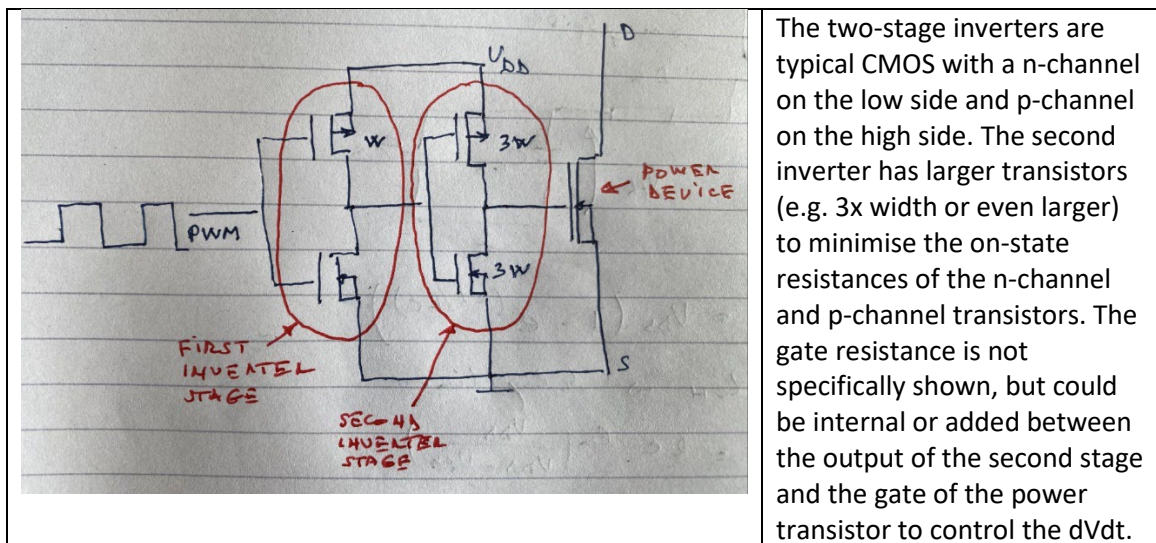 D
V_DD
W
3W
POWER
DEVICE
PWM
3W
S
FIRST
INVERTER
STAGE
SECOND
INVERTER
STAGE
The two-stage inverters are
typical CMOS with a n-channel
on the low side and p-channel
on the high side. The second
inverter has larger transistors
(e.g. 3x width or even larger)
to minimise the on-state
resistances of the n-channel
and p-channel transistors. The
gate resistance is not
specifically shown, but could
be internal or added between
the output of the second stage
and the gate of the power
transistor to control the dVdt.